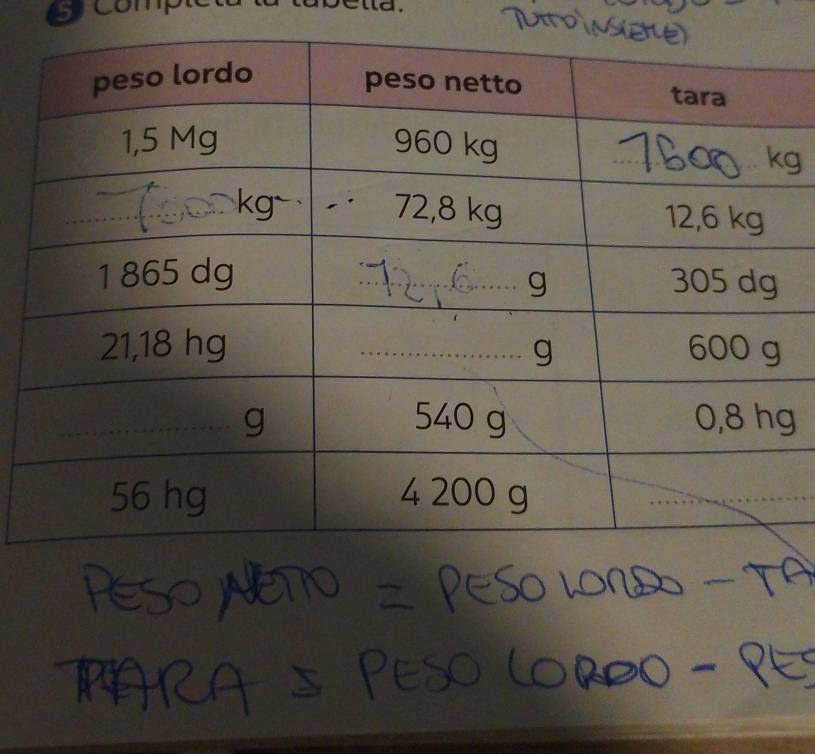 5 Completa la tabella.
TUTTO INSIEME)
peso lordo peso netto tara
1,5 Mg 960 kg kg
kg 72,8 kg 12,6 kg
1 865 dg 72,6 g 305 dg
21,18 hg g 600 g
g 540 g 0,8 hg
56 hg 4 200 g
PESO NETTO = PESO LORDO - TA
TARA = PESO LORDO - PES